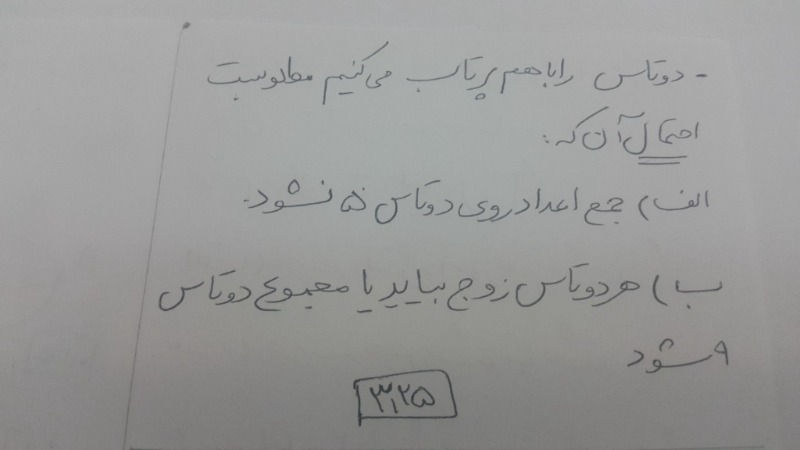 - دو تاس را با هم پرتاب می‌کنیم مطلوبست
احتمال آن که:
الف) جمع اعداد روی دو تاس ۵ نشود.
ب) هر دو تاس زوج بیاید یا مجموع دو تاس
۹ شود
۳,۲۵